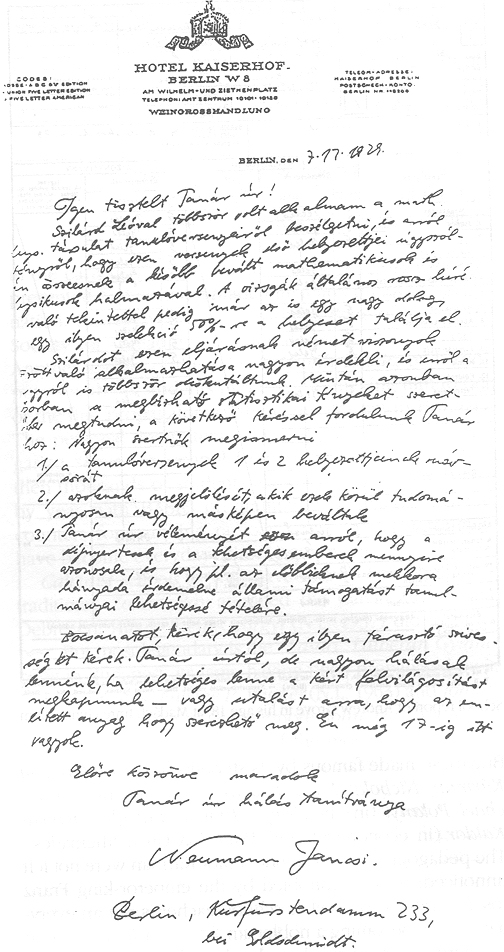 CODES:
A B C 5TH EDITION
UNION FIVE LETTER EDITION
FIVE LETTER AMERICAN
HOTEL KAISERHOF
BERLIN W 8
AM WILHELM- UND ZIETHENPLATZ
TELEPHON: AMT ZENTRUM 10101-10120
WEINGROSSHANDLUNG
TELEGR.-ADRESSE:
KAISERHOF BERLIN
POSTSCHECK-KONTO:
BERLIN NR
BERLIN, DEN 7.11.1929.
Igen tisztelt Tanár úr!
Szilárd Leóval többször volt alkalmam a math.
társulat tanulóversenyeiről beszélgetni, és arról
hogy ezen versenyek első helyezettjei
a később bevált mathematikusok és
halmazával. A vizsgák általános rossz híré-
való tekintettel pedig már az is egy nagy dolog,
egy ilyen szelekció 50%-ra a helyeset találja el.
Szilárdot ezen eljárásnak német viszonyok
való alkalmazhatása nagyon érdekli, és erről a
is többször diskutáltunk. Miután azonban
sorban a megbízható statisztikai tényeket szeret-
megtudni, a következő kéréssel fordulunk Tanár
hoz: Nagyon szeretnők megismerni
1./ a tanulóversenyek 1 és 2 helyezettjeinek név-
sorát,
2./ azoknak megjelölését, akik ezek közül tudomá-
nyosan vagy másképen beváltak
3./ Tanár úr véleményét arról, hogy a
díjnyertesek és a tehetséges emberek mennyire
azonosak, és hogy pl. az előbbieknek mekkora
hányada érdemelne állami támogatást tanul-
mányai lehetségessé tételére.
Bocsánatot kérek, hogy egy ilyen fárasztó szíves-
séget kérek Tanár úrtól, de nagyon hálásak
lennénk, ha lehetséges lenne a kért felvilágosítást
megkapnunk – vagy utalást arra, hogy az em-
lített anyag hogy szerezhető meg. Én még 17-ig itt
vagyok.
Előre köszönve maradok
Tanár úr hálás tanítványa
Neumann Jancsi.
Berlin, Kurfürstendamm 233,
bei Goldschmidt.